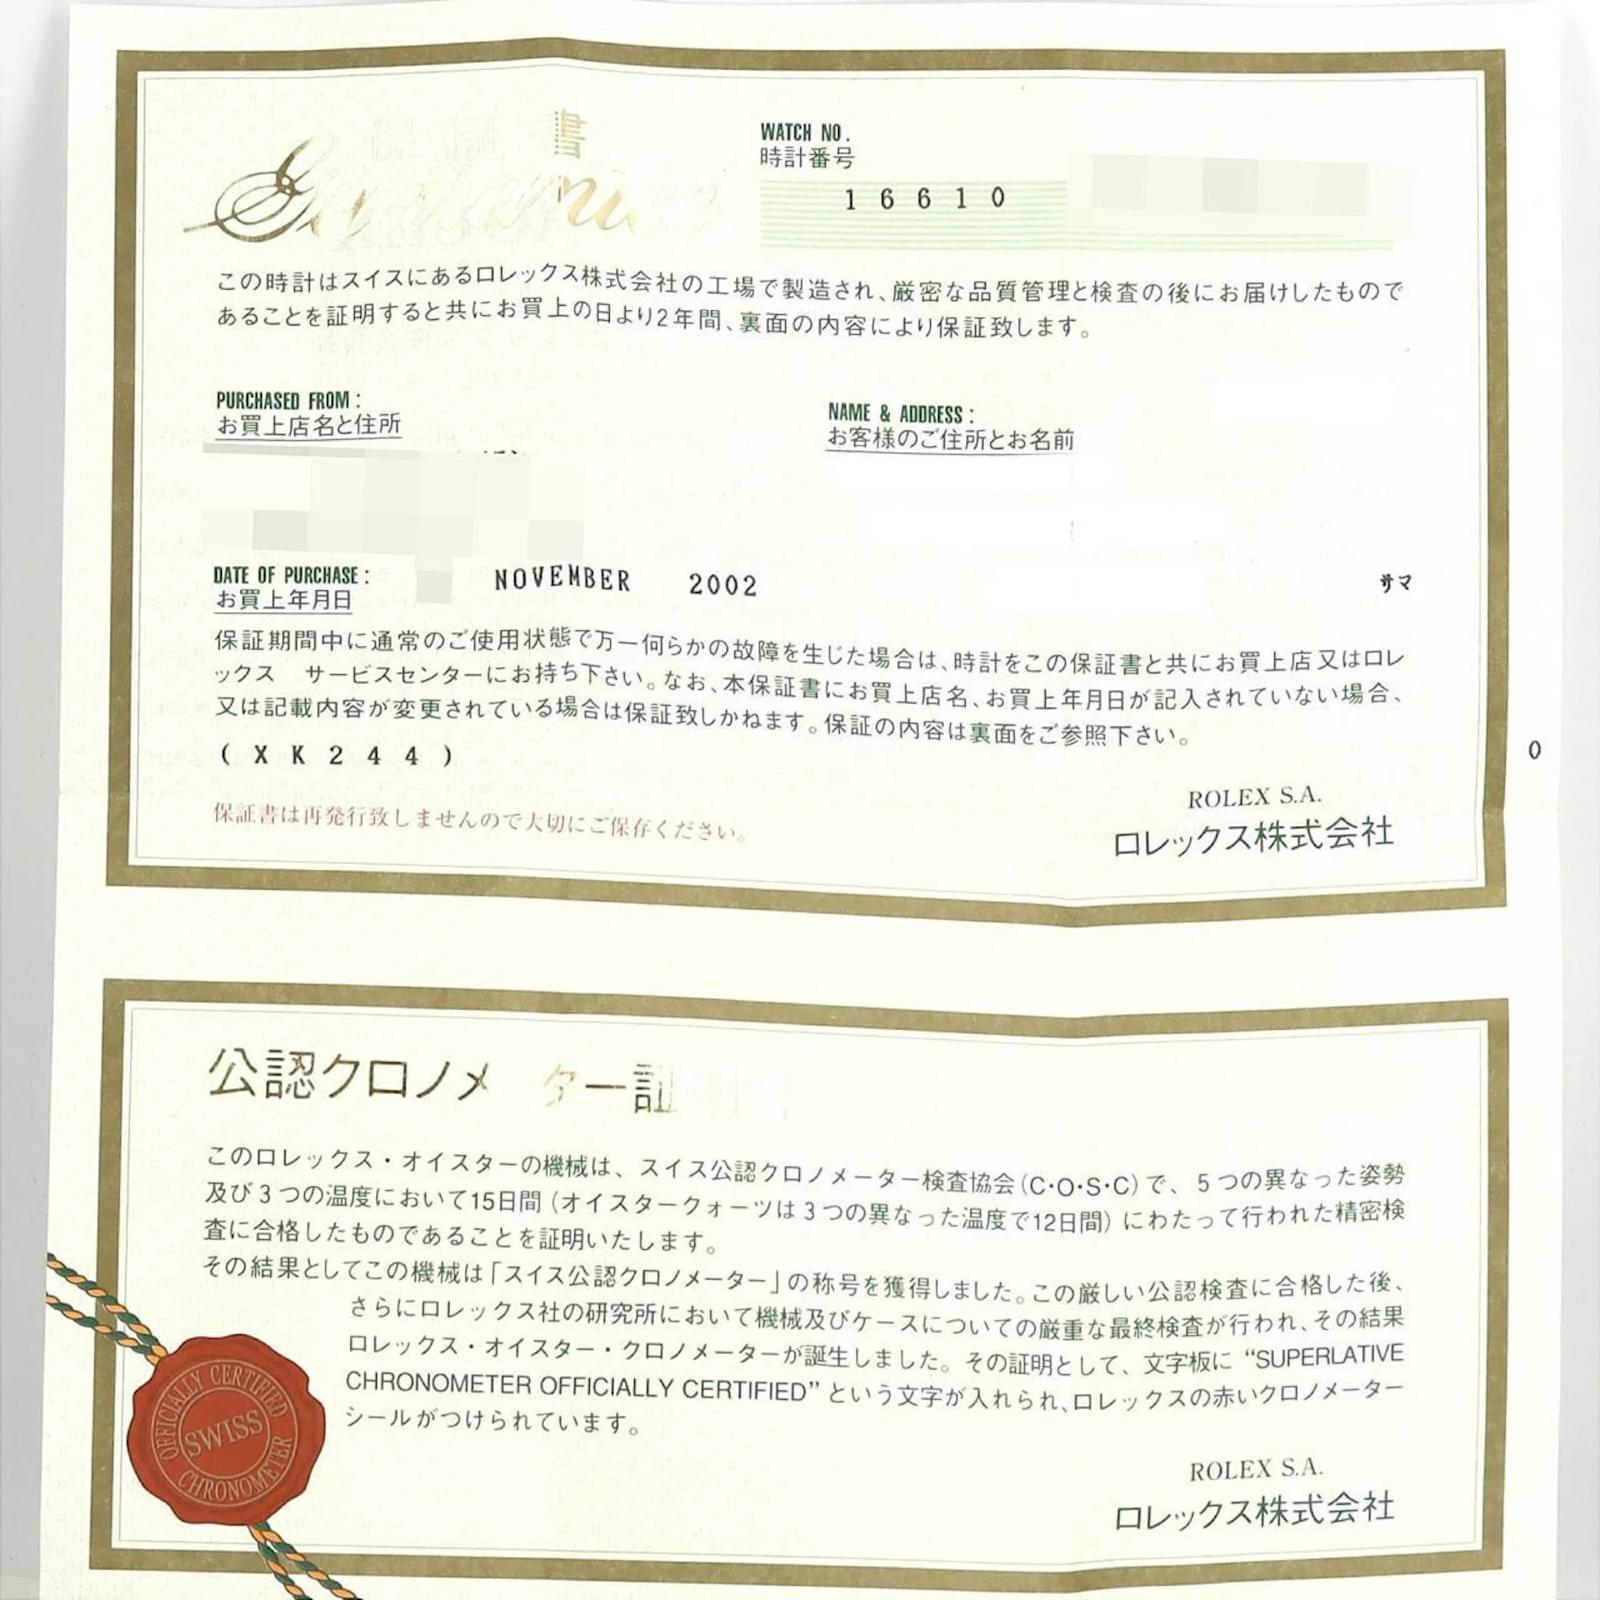 保証書
Guarantee
WATCH NO.
時計番号
16610
この時計はスイスにあるロレックス株式会社の工場で製造され、厳密な品質管理と検査の後にお届けしたもので
あることを証明すると共にお買上の日より2年間、裏面の内容により保証致します。
PURCHASED FROM:
お買上店名と住所
NAME & ADDRESS:
お客様のご住所とお名前
DATE OF PURCHASE:
お買上年月日
NOVEMBER 2002
サマ
保証期間中に通常のご使用状態で万一何らかの故障を生じた場合は、時計をこの保証書と共にお買上店又はロレ
ックス サービスセンターにお持ち下さい。なお、本保証書にお買上店名、お買上年月日が記入されていない場合、
又は記載内容が変更されている場合は保証致しかねます。保証の内容は裏面をご参照下さい。
(XK244)
0
保証書は再発行致しませんので大切にご保存ください。
ROLEX S.A.
ロレックス株式会社
公認クロノメーター証明書
このロレックス・オイスターの機械は、スイス公認クロノメーター検査協会(C・O・S・C)で、5つの異なった姿勢
及び3つの温度において15日間(オイスタークォーツは3つの異なった温度で12日間)にわたって行われた精密検
査に合格したものであることを証明いたします。
その結果としてこの機械は「スイス公認クロノメーター」の称号を獲得しました。この厳しい公認検査に合格した後、
さらにロレックス社の研究所において機械及びケースについての厳重な最終検査が行われ、その結果
ロレックス・オイスター・クロノメーターが誕生しました。その証明として、文字板に“SUPERLATIVE
CHRONOMETER OFFICIALLY CERTIFIED”という文字が入れられ、ロレックスの赤いクロノメーター
シールがつけられています。
OFFICIALLY CERTIFIED
SWISS
CHRONOMETER
ROLEX S.A.
ロレックス株式会社